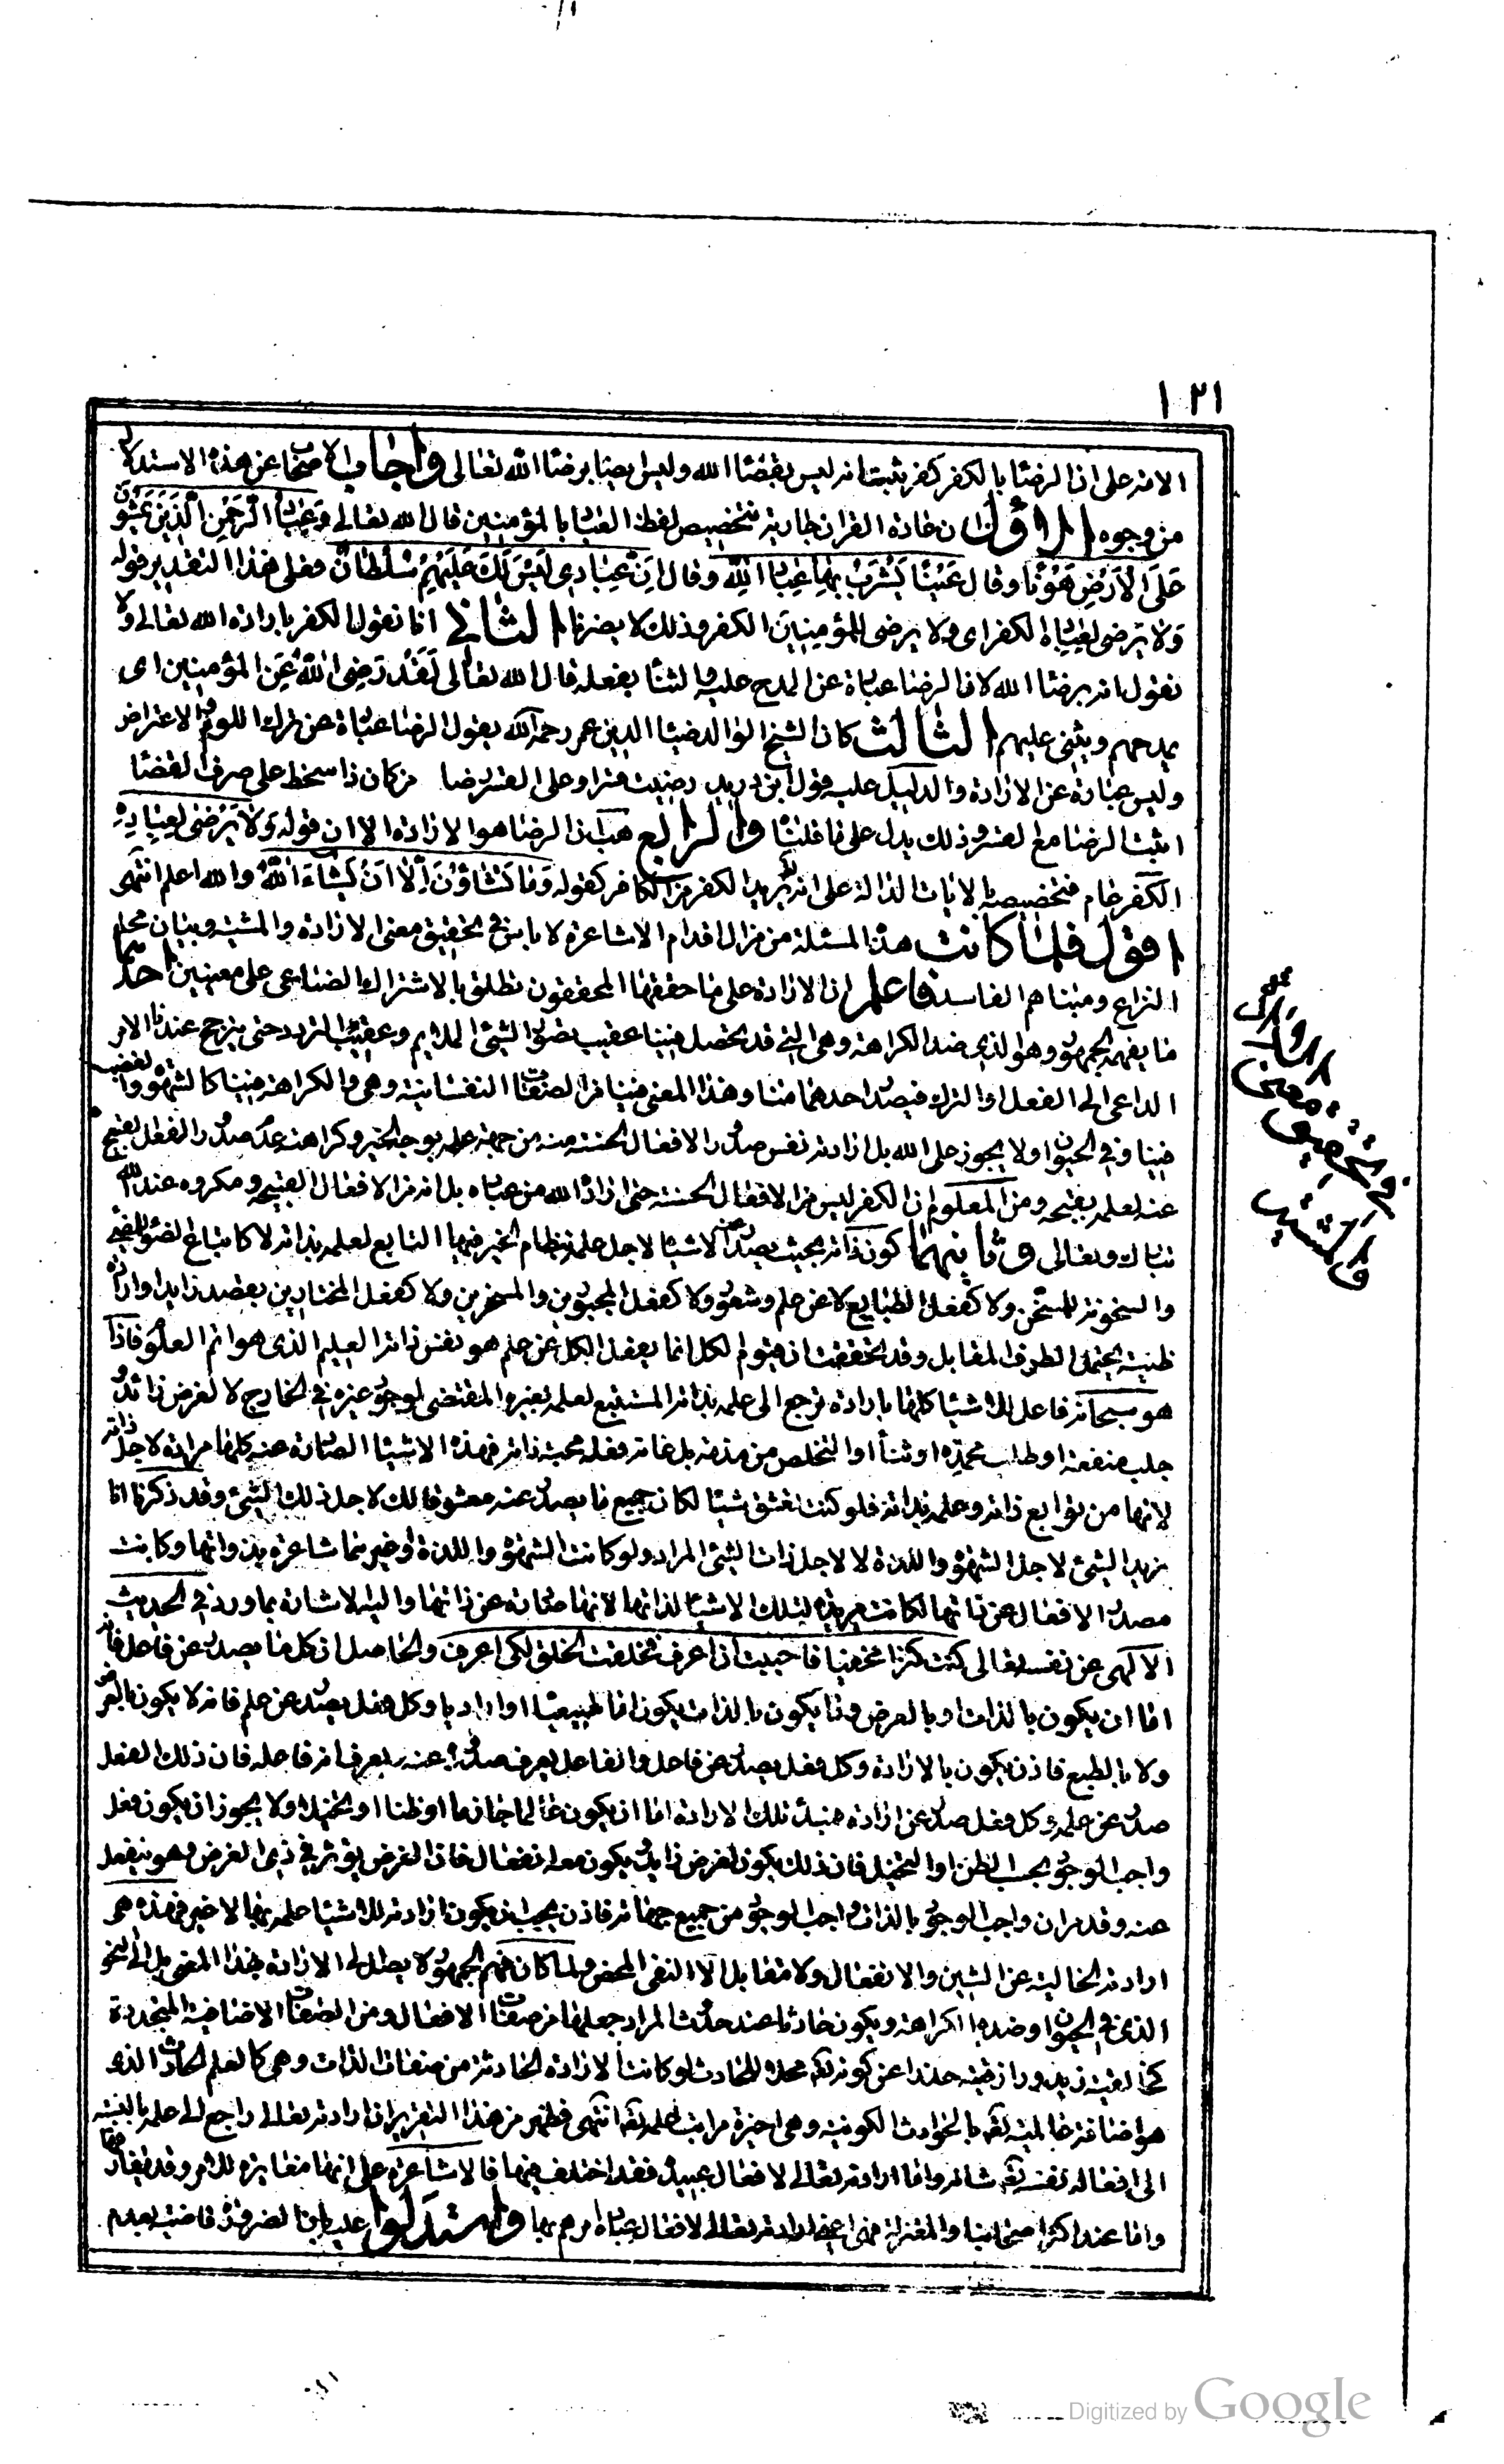 ١٢١
الامة على ان الرضا بالكفر كفر يثبت انه ليس بقضاء الله وليس ايضا برضا الله تعالى واجاب الاصحاب عن هذا الاستدلال
من وجوه الاول ان عادة القران جارية بتخصيص لفظ العباد بالمؤمنين قال الله تعالى وَعِبادُ الرَّحْمنِ الَّذينَ يَمْشُونَ
عَلَى الْاَرْضِ هَوْنًا وقال عَيْنًا يَشْرَبُ بِها عِبادُ اللّهِ وقال اِنَّ عِبادي لَيْسَ لَكَ عَلَيْهِمْ سُلْطانٌ فعلى هذا التقدير قوله
وَلا يَرضى لِعِبادِه الكفر اى ولا يرضى للمؤمنين الكفر وذلك لا يضرنا الثانى انا نقول الكفر بارادة الله تعالى ولا
نقول انه برضا الله لان الرضا عبارة عن المدح عليه والثناء بفعله قال الله تعالى لَقَدْ رَضِىَ اللّهُ عَنِ المؤمنين اى
يمدحهم ويثنى عليهم الثالث كان الشيخ الوالد ضياء الدين عمر رحمه الله يقول الرضا عبارة عن ترك اللوم والاعتراض
وليس عبارة عن الارادة والدليل عليه قول ابن دريد رضيت قسرا وعلى القسر رضا من كان ذا سخط على صرف القضا
اثبت الرضا مع القسر وذلك يدل على ما قلناه والرابع هب ان الرضا هو الارادة الا ان قوله وَلا يَرْضى لِعِبادِه
الكفر عام فتخصيصه بالايات الدالة على انه تع يريد الكفر من الكافر كقوله وَما تَشاؤُنَ اِلّا اَنْ يَشاءَ اللّهُ والله اعلم انتهى
اقول فلما كانت هذا المسئلة من مزال اقدام الاشاعرة لا باس فى تحقيق معنى الارادة والمشية وبيان محل
النزاع ومبناهم الفاسد فاعلم ان الارادة على ما حققها المحققون تطلق بالاشتراك الصناعى على معنيين احدهما
ما يفهمه الجمهور وهو الذى ضد الكراهة وهى التى قد تحصل فينا عقيب تصور الشئ الملايم وعقيب التردد حتى يترجح عندنا الامر
الداعى الى الفعل او الترك فيصدر احدهما منا وهذا المعنى فينا من الصفات النفسانية وهى والكراهة فينا كالشهوة والغضب
فينا وفى الحيوان ولا يجوز على الله بل ارادته نفس صدور الافعال الحسنة منه من جهة علمه بوجه الخير وكراهته عدم صدور الفعل القبيح
عنه لعلمه بقبحه ومن المعلوم ان الكفر ليس من الافعال الحسنة حتى ارادَ الله من عباده بل انه من الافعال القبيحة ومكروه عند الله
تبارك وتعالى وثانيهما كون ذاته بحيث يصدر عنه الاشياء لاجل علمه بنظام الخير فيها التابع لعلمه بذاته لا كاتباع الضوء للمضئ
والسخونة للمسخن ولا كفعل الطبايع لا عن علم وشعور ولا كفعل المجبورين والمسخرين ولا كفعل المختارين بقصد زايد وارادة
ظنية يحتمل الطرف المقابل وقد تحققت ان قيوم الكل انما يفعل الكل عن علم هو نفس ذاته العليم الذى هو اتم العلوم فاذا
هو سبحانه فاعل للاشياء كلها بارادة ترجع الى علمه بذاته المستتبع لعلمه بغيره المقتضى لوجود غيره فى الخارج لا لغرض زائد
جلب منفعة او طلب محمدة او ثناء او التخلص من مذمة بل غاية فعله محبة ذاته فهذه الاشياء الصادرة عنه كلها مرادة لاجل ذاته
لانها من توابع ذاته وعلمه بذاته فلو كنت تعشق شيئا لكان جميع ما يصدر عنه معشوقا لك لاجل ذلك الشئ وقد ذكرنا انا
نريد الشئ لاجل الشهوة واللذة لا لاجل ذات الشئ المراد ولو كانت الشهوة واللذة او غيرهما شاعرة بذواتها وكانت
مصدر الافعال عن ذاتها لكانت مريدة لتلك الاشياء لذاتها لانها صادرة عن ذاتها واليه الاشارة بما ورد فى الحديث
الالهى عن نفسه تعالى كنت كنزا مخفيا فاحببت ان اعرف فخلقت الخلق لكى اعرف والحاصل ان كل ما يصدر عن فاعل فانه
اما ان يكون بالذات او بالعرض وما يكون بالذات يكون اما طبيعيا او اراديا وكل فعل يصدر عن علم فانه لا يكون بالعرض
ولا بالطبع فاذن يكون بالارادة وكل فعل يصدر عن فاعل والفاعل يعرف صدوره عنه ويعرف انه فاعله فان ذلك الفعل
صدر عن علمه وكل فعل صدر عن ارادة فمبدء تلك الارادة اما ان يكون علما جازما او ظنا او تخيلا ولا يجوز ان يكون فعل
واجب الوجود بحسب الظن او التخيل فان ذلك يكون لغرض زايد ويكون معه انفعال فان الغرض يؤثر فى ذى الغرض وهو ينفعل
عنه وقد مر ان واجب الوجود بالذات واجب الوجود من جميع جهاته فاذن يجب ان يكون ارادته للاشياء علمه بها لا غير فهذه هى
ارادته الخالية عن الشين والانفعال ولا مقابل لها الا النفى المحض ولما كان فهم الجمهور لا يصل الى الارادة بهذا المعنى بل الى النحو
الذى فى الحيوان وضده الكراهة ويكون حادثا عند حدوث المراد جعلها من صفات الافعال ومن الصفات الاضافية المتجددة
كخالقية زيد ورازقيته حذرا عن كونه تع محلا للحوادث لو كانت الارادة الحادثة من صفات الذات وهى كالعلم الحادث الذى
هو اضافة عالميته تع بالحوادث الكونية وهى اخيرة مراتب علمه تع انتهى فظهر من هذا التقرير ان ارادته تعالى راجع الى علمه بالنسبة
الى افعال نفسه تع شانه واما ارادته تعالى لافعال عبيده فقد اختلف فيها فالاشاعرة على انها مغايرة للامر وقد يتفارقا
واما عند اكثر اصحابنا والمعتزلة فهى اعنى ارادته تعالى لافعال عباده امرهم بها واستدلوا عليه بان الضرورة قاضية بعدم
فى تحقيق معنى الارادة
والمشية
Digitized by Google